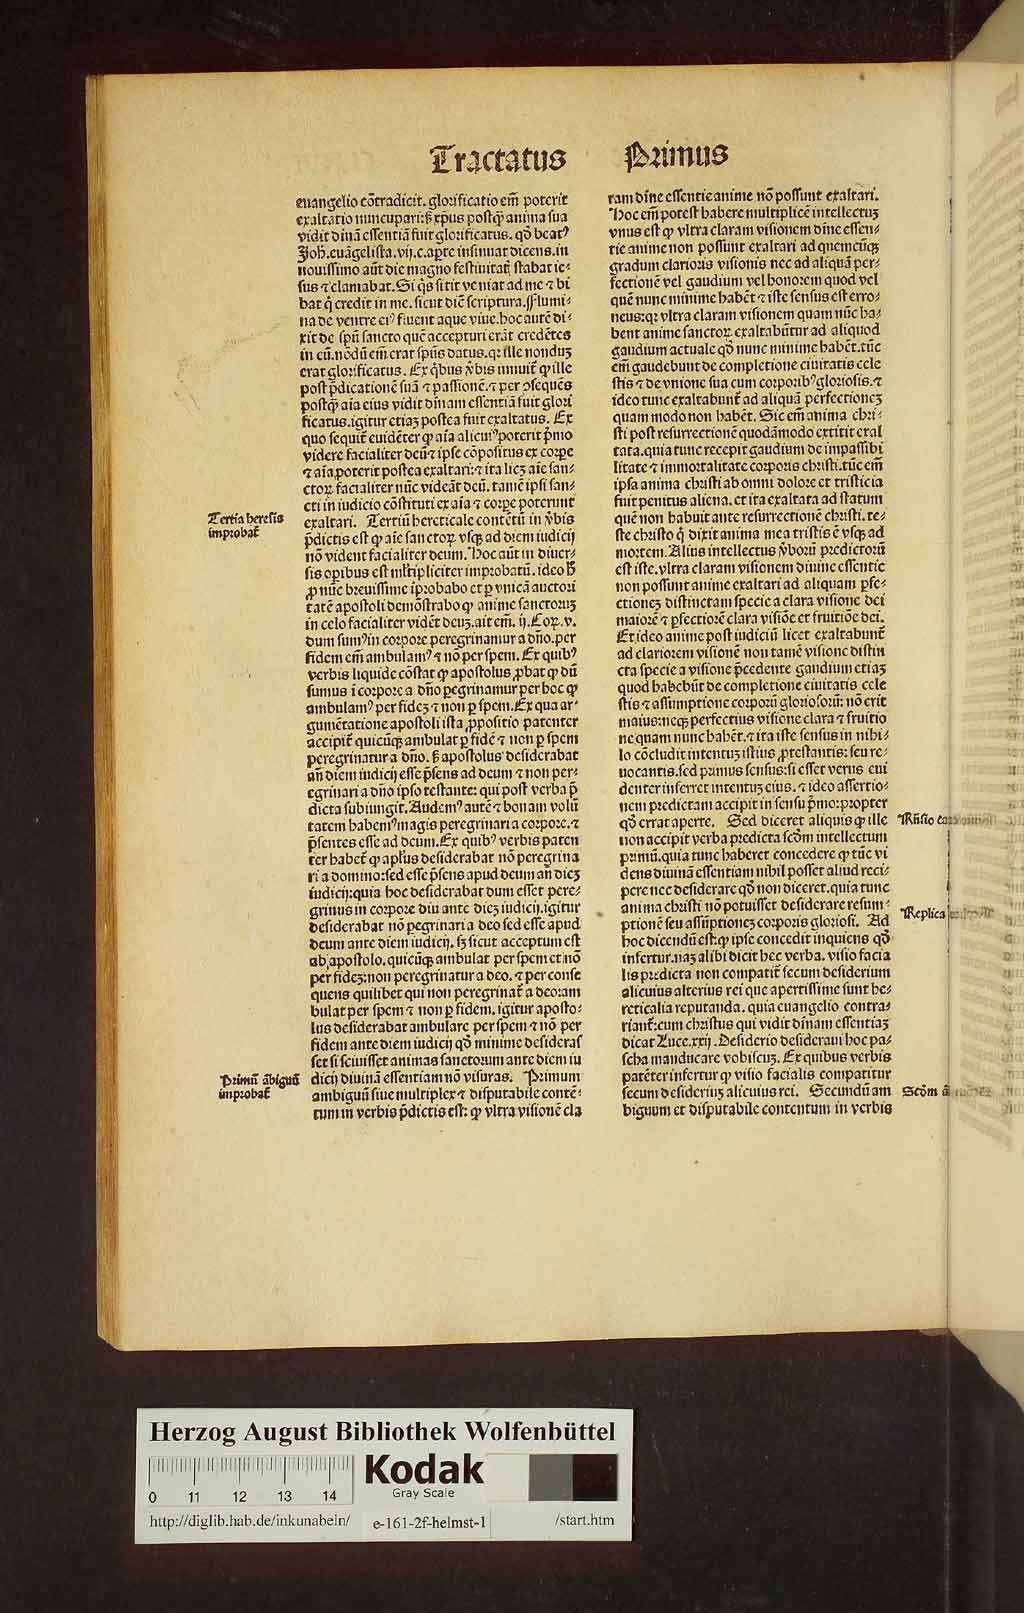 Tractatus Primus
euangelio cōtradicit. glorificatio em̄ poterit
exaltatio nuncupari: sȝ xp̄us postq̄ anima sua
vidit diuinā essentiā fuit glorificatus. qd̄ beatꝰ
Joh. euāgelista. vij. c. ap̄te insinuat dicens. in
nouissimo aūt die magno festiuitat̄ stabat ie⸗
sus ⁊ clamabat. Si q̄s sitit veniat ad me ⁊ bi
bat q̄ credit in me. sicut dic̄ scriptura. Flumi⸗
na de ventre eiꝰ fluent aque viue. hoc autē di⸗
xit de spū sancto quē accepturi erāt credētes
in eū. nōdū em̄ erat spūs datus. qꝛ ille nonduȝ
erat glorificatus. Ex q̄bus v̄bis innuit̄ ꝙ ille
post p̄dicationē suā ⁊ passionē. ⁊ per ↄsequēs
postq̄ aīa eius vidit dīnam essentiā fuit glori
ficatus. igitur etiaȝ postea fuit exaltatus. Ex
quo sequit̄ euidēter ꝙ aīa alicuiꝰ poterit p̄mo
videre facialiter deū ⁊ ipse cōpositus ex corpe
⁊ aīa poterit postea exaltari: ⁊ ita licȝ aīe san⸗
ctoꝝ facialiter nūc videāt deū. tamē ipsi san⸗
cti in iudicio cōstituti ex aīa ⁊ corpe poterunt
exaltari. Tertiū hereticale contētū in v̄bis
p̄dictis est ꝙ aīe sanctoꝝ vsqȝ ad diem iudicij
nō vident facialiter deum. Hoc aūt in diuer⸗
sis op̄ibus est mltipliciter improbatū. ideo h̄
ꝓ nūc breuissime īprobabo et ꝑ vnicā auctori
tatē apostoli demōstrabo ꝙ anime sanctoruȝ
in celo facialiter vidēt deuȝ. ait em̄. ij. Coꝝ. v.
dum sumꝰ in corpore peregrinamur a dn̄o. per
fidem em̄ ambulamꝰ ⁊ nō per spem. Ex quibꝰ
verbis liquide cōstat ꝙ apostolus ꝓbat ꝙ dū
sumus ī corpore a dn̄o pegrinamur per hoc ꝙ
ambulamꝰ per fideȝ ⁊ non ꝑ spem. Ex qua ar⸗
gumētatione apostoli ista ꝓpositio patenter
accipit̄ quicūqȝ ambulat ꝑ fidē ⁊ non ꝑ spem
peregrinatur a dn̄o. sȝ apostolus desiderabat
an̄ diem iudicij esse p̄sens ad deum ⁊ non per⸗
egrinari a dn̄o ipso testante: qui post verba p̄
dicta subiungit. Audemꝰ autē ⁊ bonam volū
tatem habemꝰ magis peregrinari a corpore. ⁊
p̄sentes esse ad deum. Ex quibꝰ verbis paten
ter habet̄ ꝙ apl̄us desiderabat nō peregrina
ri a domino: sed esse p̄sens apud deum an̄ dieȝ
iudicij: quia hoc desiderabat dum esset pere⸗
grinus in corpore diu ante dieȝ iudicij. igitur
desiderabat nō pegrinari a deo sed esse apud
deum ante diem iudicij. sȝ sicut acceptum est
ab apostolo. quicūqȝ ambulat per spem et nō
per fideȝ: non peregrinatur a deo. ⁊ per conse
quens quilibet qui non peregrinat̄ a deo: am
bulat per spem ⁊ non ꝑ fidem. igitur aposto⸗
lus desiderabat ambulare per spem ⁊ nō per
fidem ante diem iudicij qd̄ minime desideras
set si sciuisset animas sanctorum ante diem iu
dicij diuinā essentiam nō visuras. Primum
ambiguū siue multiplex ⁊ disputabile contē⸗
tum in verbis p̄dictis est: ꝙ vltra visionē cla
Tertia heresis
improbat̄
Primū ābiguū
improbat̄
ram diuine essentie anime nō possunt exaltari.
Hoc em̄ potest habere multiplicē intellectuȝ
vnus est ꝙ vltra claram visionem dīne essen⸗
tie anime non possunt exaltari ad quemcūqȝ
gradum clarioris visionis nec ad aliquā per⸗
fectionē vel gaudium vel honorem quod vel
quē nunc minime habēt ⁊ iste sensus est erro⸗
neus: qꝛ vltra claram visionem quam nūc ha⸗
bent anime sanctoꝝ exaltabūtur ad aliquod
gaudium actuale qd̄ nunc minime habēt. tūc
em̄ gaudebunt de completione ciuitatis cele
stis ⁊ de vnione sua cum corporibꝰ gloriosis. ⁊
ideo tunc exaltabunt̄ ad aliquā perfectioneȝ
quam modo non habēt. Sic em̄ anima chri⸗
sti post resurrectionē quodāmodo extitit exal
tata. quia tunc recepit gaudium de impassibi
litate ⁊ immortalitate corporis christi. tūc em̄
ipsa anima christi ab omni dolore et tristicia
fuit penitus aliena. et ita exaltata ad statum
quē non habuit ante resurrectionē christi. te⸗
ste christo q̄ dixit anima mea tristis ē vsqȝ ad
mortem. Alius intellectus v̄borū predictorū
est iste. vltra claram visionem diuine essentie
non possunt anime exaltari ad aliquam pfe⸗
ctioneȝ distinctam specie a clara visione dei
maiorē ⁊ ꝑfectiorē clara visiōe et fruitiōe dei.
Et ideo anime post iudiciū licet exaltabunt̄
ad clariorem visionē non tamē visione distin
cta specie a visione p̄cedente gaudium etiaȝ
quod habebūt de completione ciuitatis cele
stis ⁊ assumptione corporū gloriosorū: nō erit
maius: neqȝ perfectius visione clara ⁊ fruitio
ne quam nunc habēt. ⁊ ita iste sensus in nihi⸗
lo cōcludit intentuȝ istius ꝓtestantis: seu re⸗
uocantis. sed primus sensus: si esset verus eui
denter inferret intentuȝ eius. ⁊ ideo assertio⸗
nem predictam accipit in sensu p̄mo: propter
qd̄ errat aperte. Sed diceret aliquis ꝙ ille
non accipit verba predicta scd̄m intellectum
primū. quia tunc haberet concedere ꝙ tūc vi
dens diuinā essentiam nihil posset aliud reci⸗
pere nec desiderare qd̄ non diceret. quia tunc
anima christi nō potuisset desiderare resum⸗
ptionē seu assūptioneȝ corporis gloriosi. Ad
hoc dicendū est: ꝙ ipse concedit inquiens qd̄
infertur. naȝ alibi dicit hec verba. visio facia
lis predicta non compatit̄ secum desiderium
alicuius alterius rei que apertissime sunt he⸗
reticalia reputanda. quia euangelio contra⸗
riant̄: cum christus qui vidit diuinam essentiaȝ
dicat Luce. xxij. Desiderio desideraui hoc pa⸗
scha manducare vobiscuȝ. Ex quibus verbis
patēter infertur ꝙ visio facialis compatitur
secum desideriuȝ alicuius rei. Secundū am
biguum et disputabile contentum in verbis
Rn̄sio
Replica
Scd̄m
Herzog August Bibliothek Wolfenbüttel
0 11 12 13 14
Kodak
Gray Scale
http://diglib.hab.de/inkunabeln/ e-161-2f-helmst-1 /start.htm